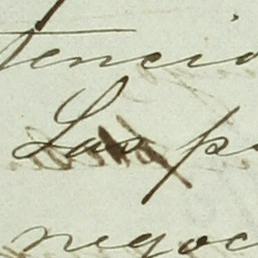 tencio
Las p
negoc